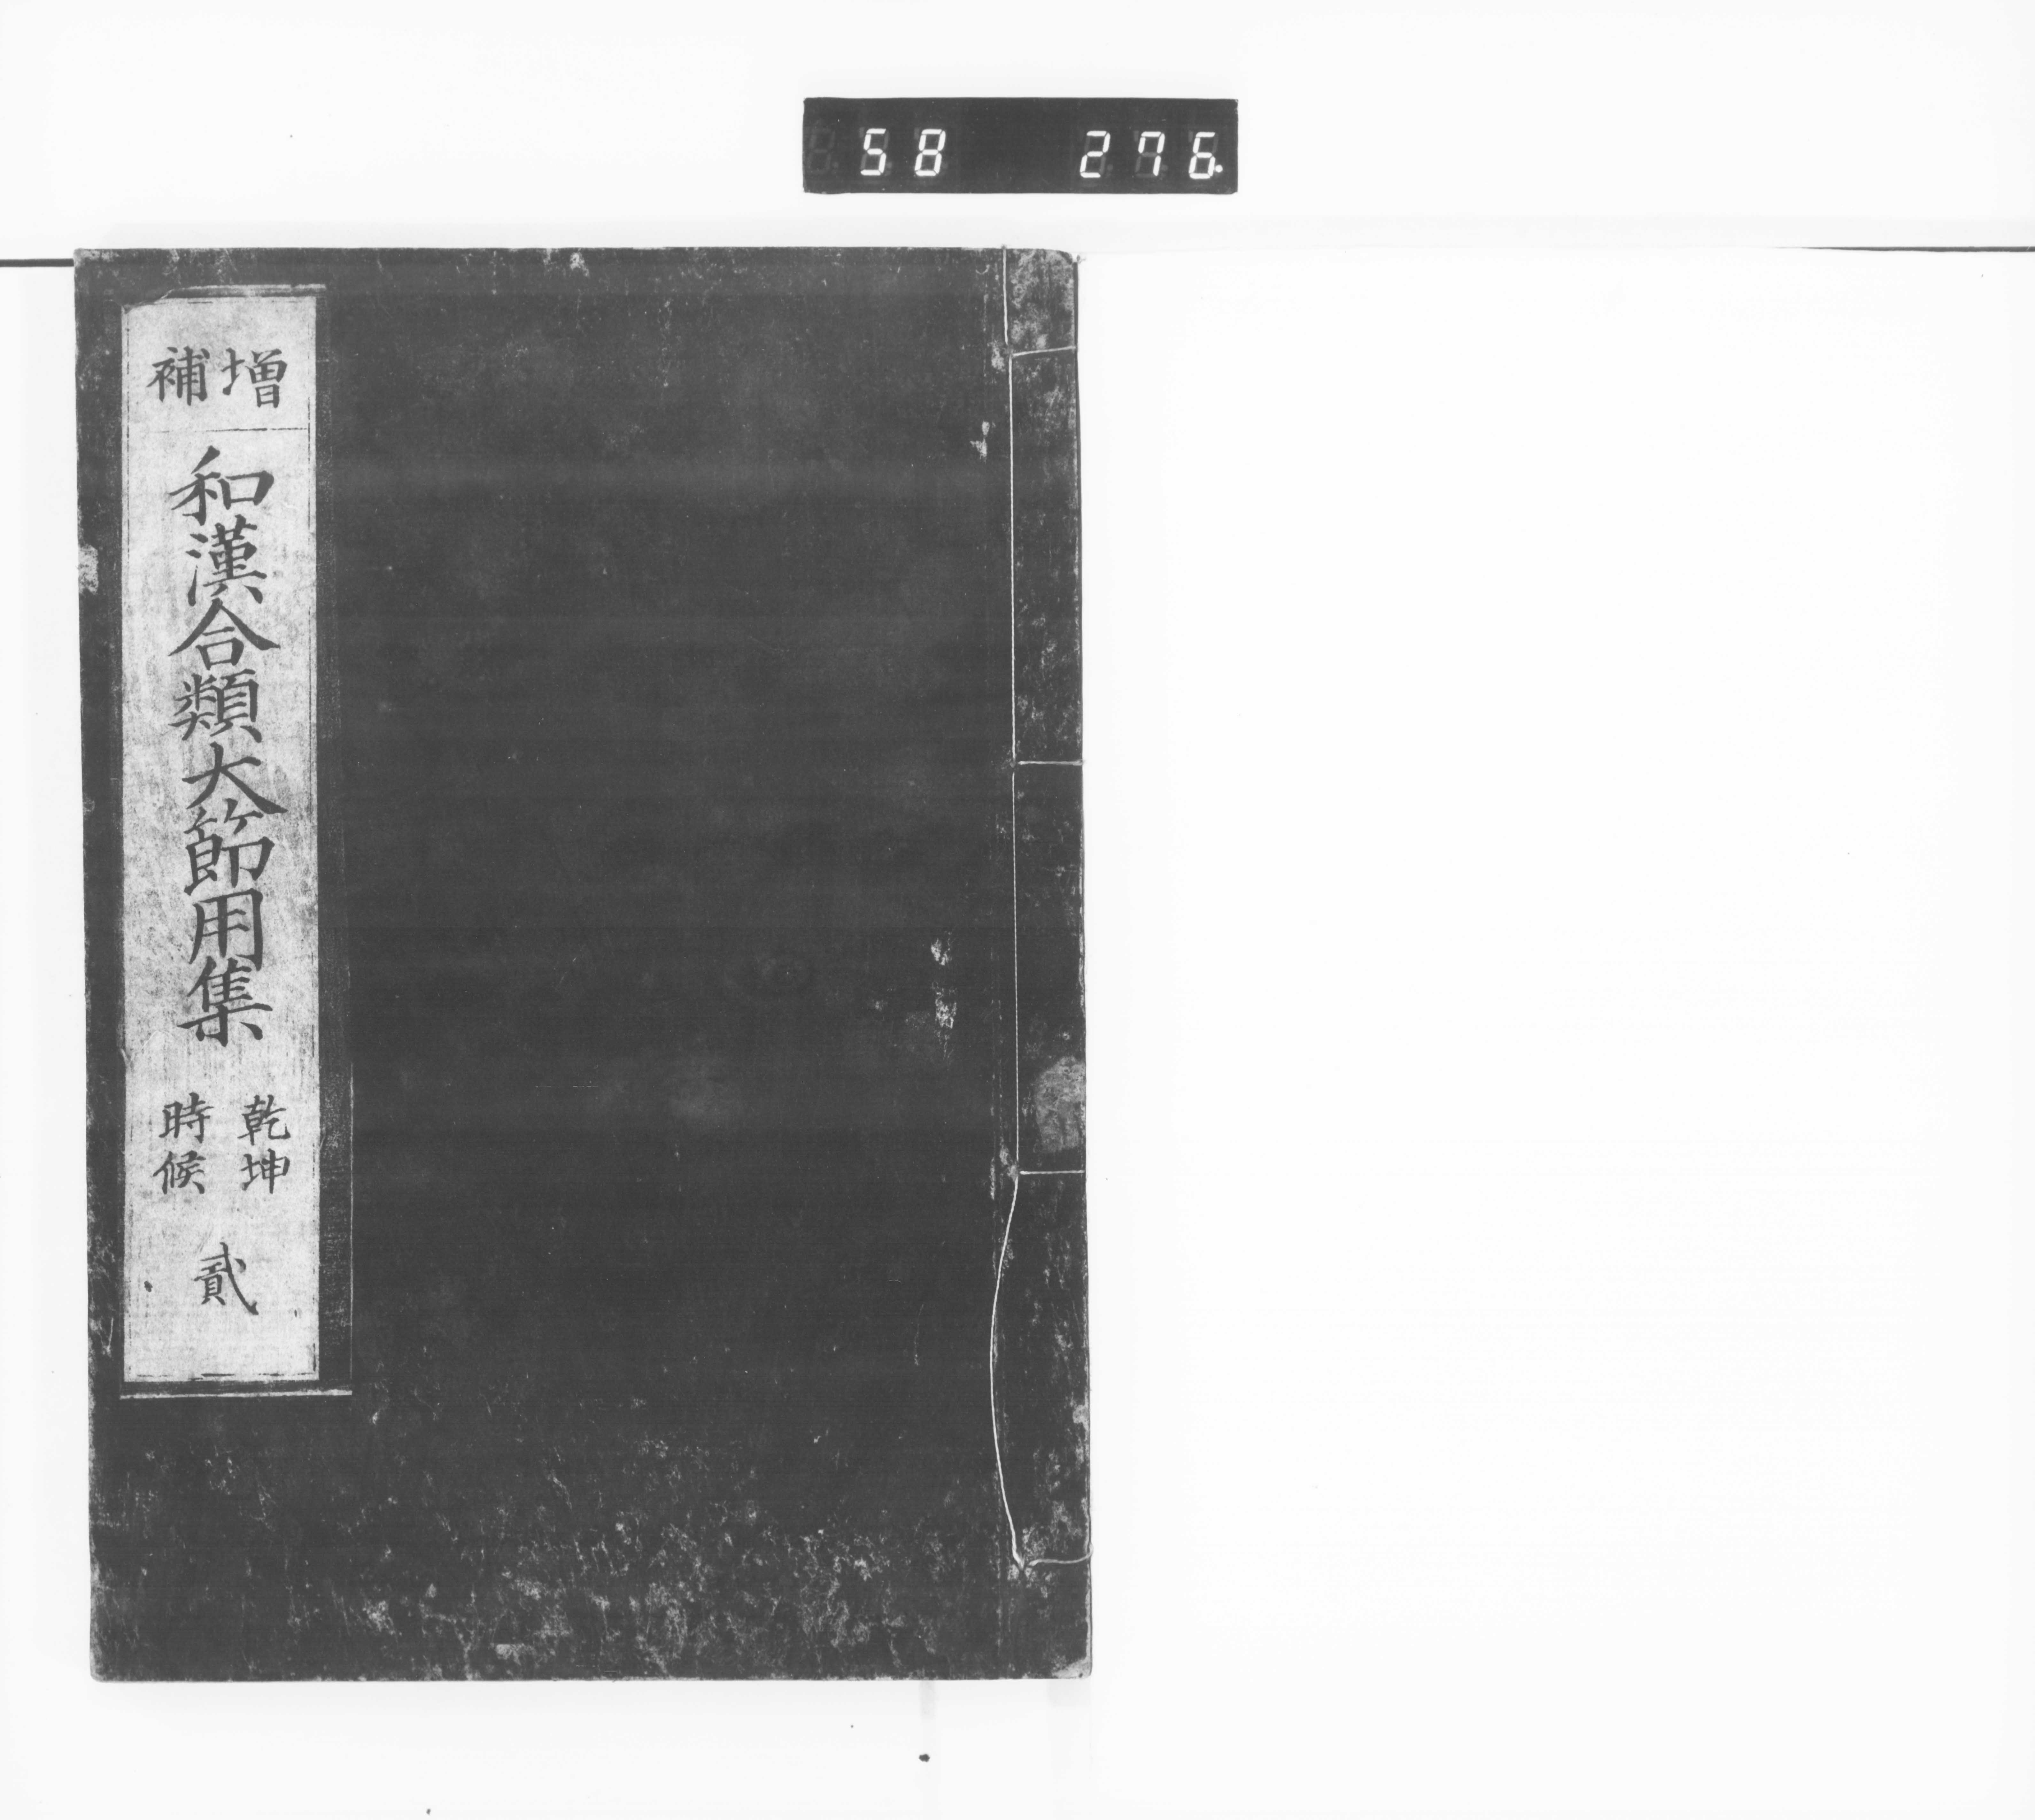 58 276.
増補
和漢合類大節用集
乾坤
時候
貳